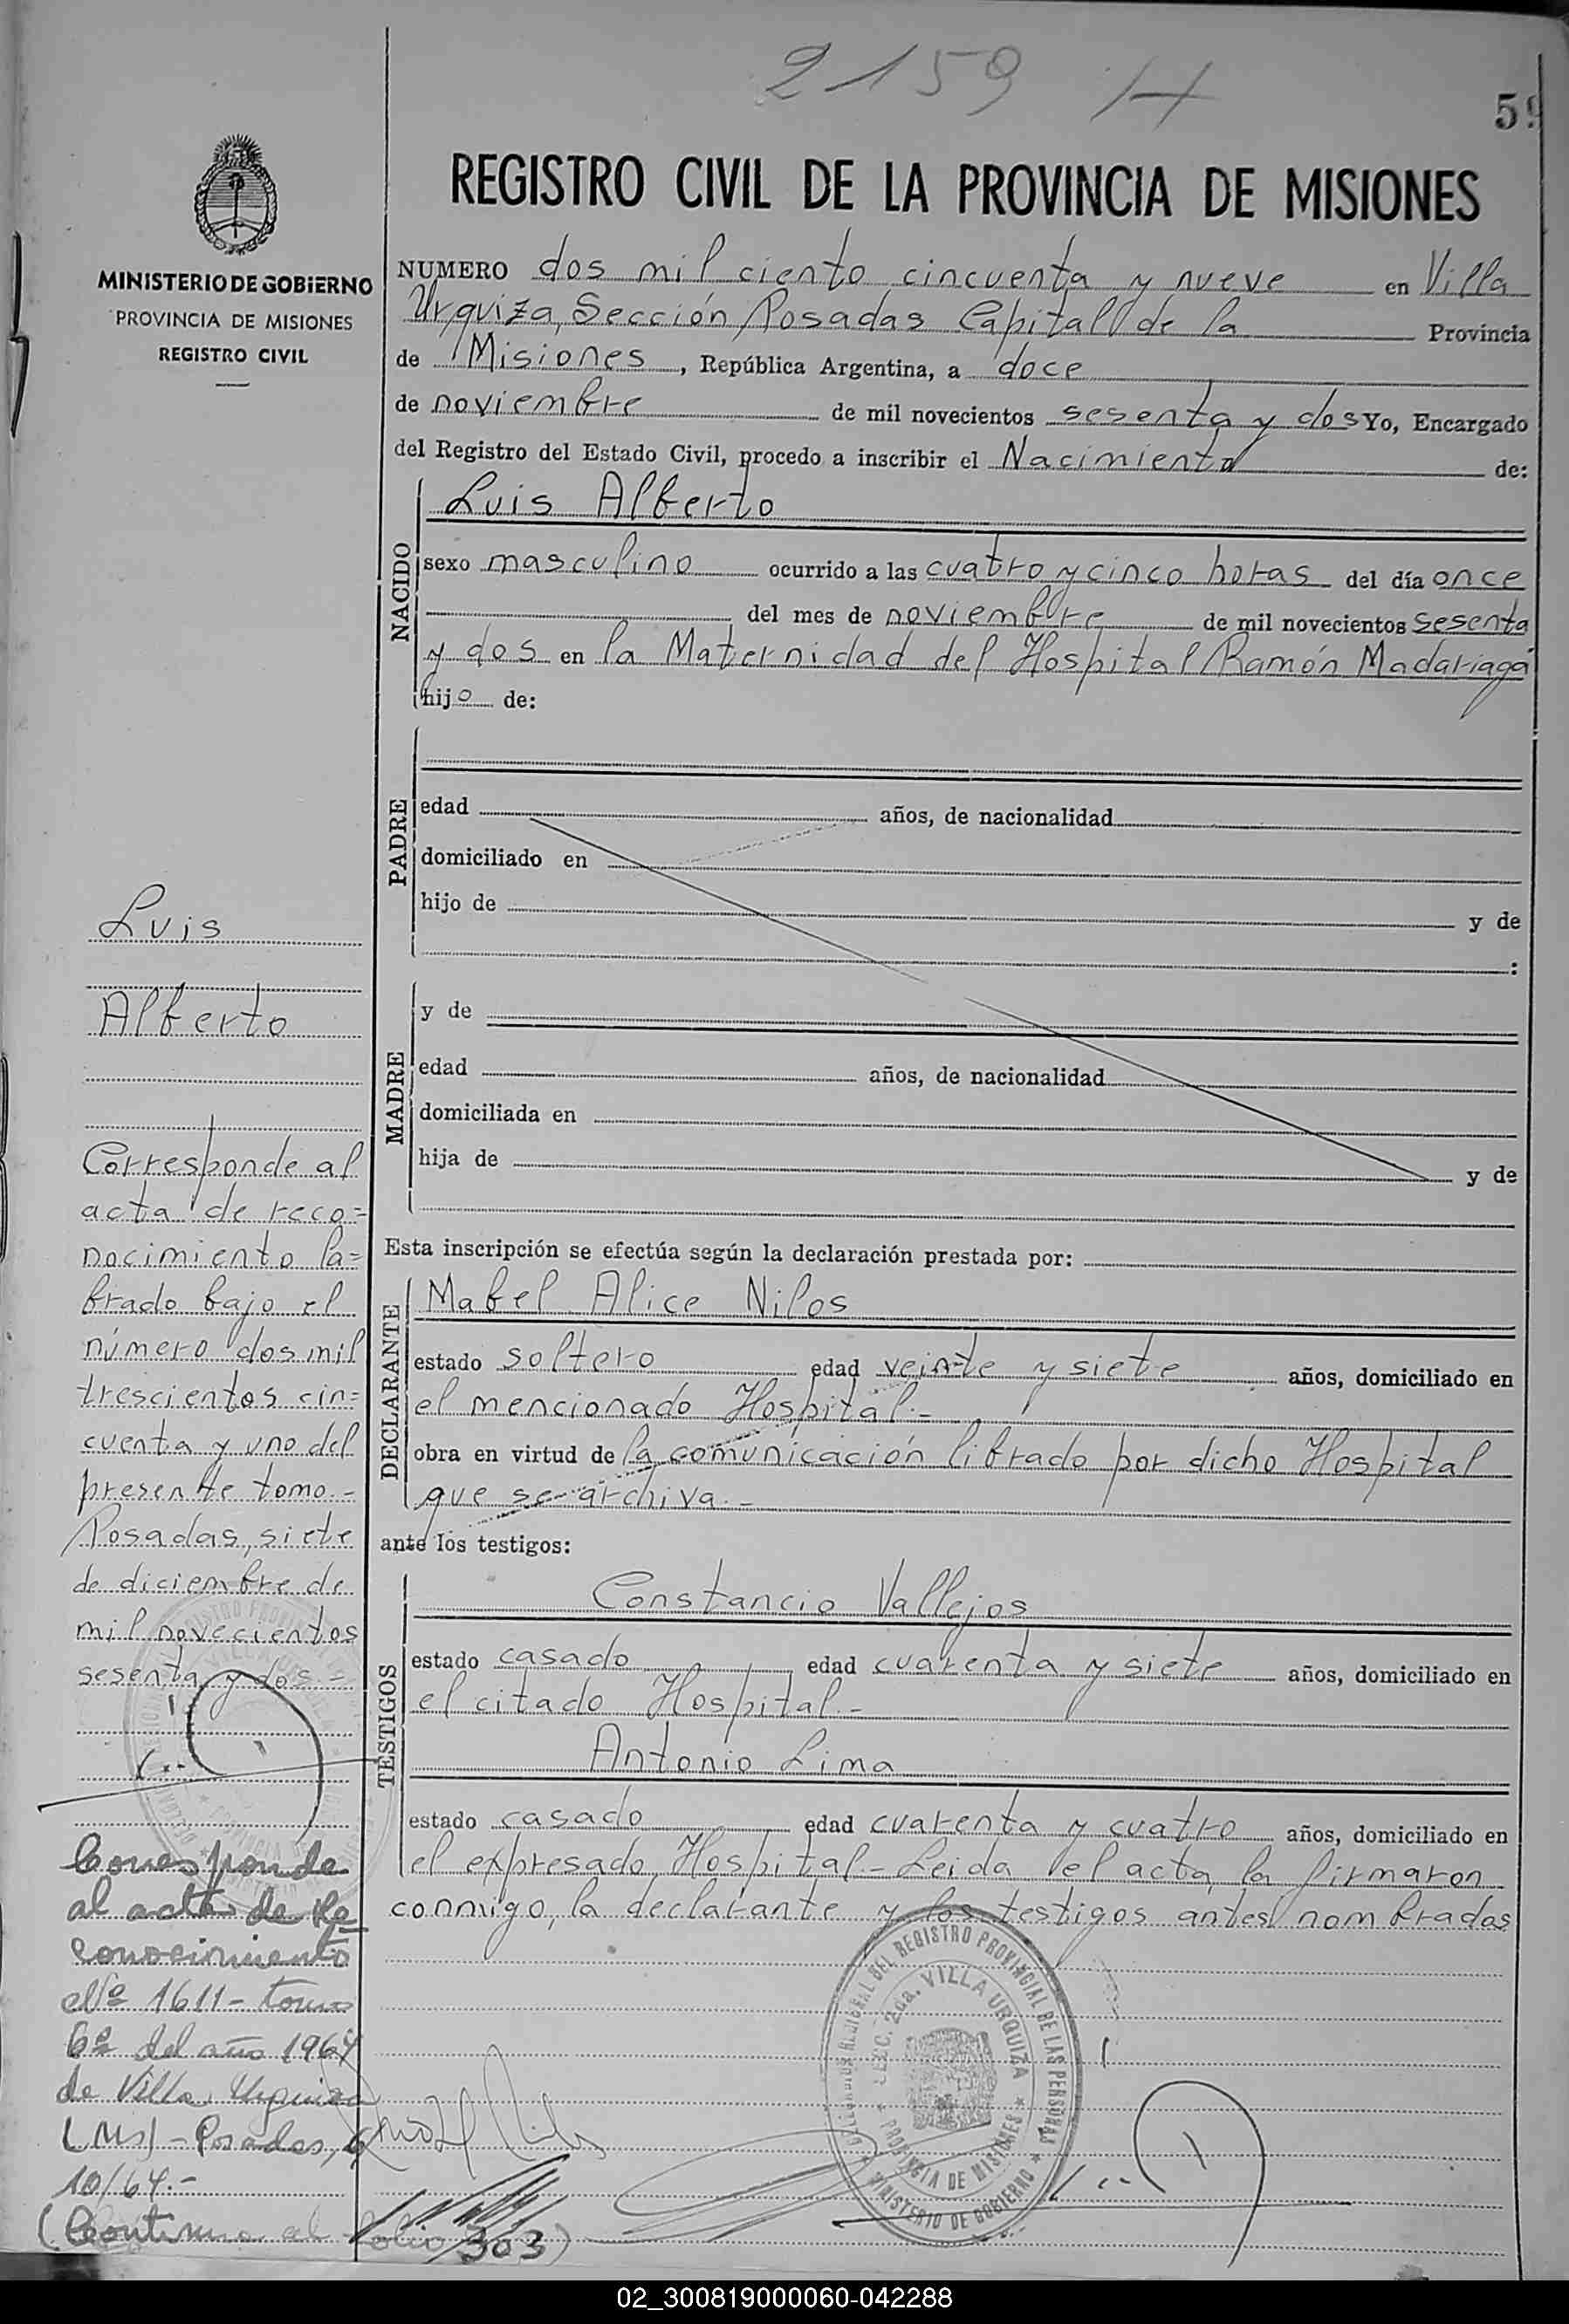 2159 H
59
REGISTRO CIVIL DE LA PROVINCIA DE MISIONES
MINISTERIO DE GOBIERNO
PROVINCIA DE MISIONES
REGISTRO CIVIL
NUMERO dos mil ciento cincuenta y nueve en Villa
Urquiza, Sección Posadas Capital de la Provincia
de Misiones, República Argentina, a doce
de noviembre de mil novecientos sesenta y dos Yo, Encargado
del Registro del Estado Civil, procedo a inscribir el Nacimiento de:
NACIDO
Luis Alberto
sexo masculino ocurrido a las cuatro y cinco horas del día once
del mes de noviembre de mil novecientos sesenta
y dos en la Maternidad del Hospital Ramón Madariaga
hijo de:
PADRE
edad años, de nacionalidad
domiciliado en
hijo de y de
:
MADRE
y de
edad años, de nacionalidad
domiciliada en
hija de y de
Esta inscripción se efectúa según la declaración prestada por:
DECLARANTE
Mabel Alice Nilos
estado soltero edad veinte y siete años, domiciliado en
el mencionado Hospital.-
obra en virtud de la comunicación librado por dicho Hospital
que se archiva.-
ante los testigos:
TESTIGOS
Constancio Vallejos
estado casado edad cuarenta y siete años, domiciliado en
el citado Hospital.-
Antonio Lima
estado casado edad cuarenta y cuatro años, domiciliado en
el expresado Hospital.- Leida el acta, la firmaron
conmigo, la declarante y los testigos antes nombrados
Luis
Alberto
Corresponde al
acta de reco=
nocimiento la=
brado bajo el
número dos mil
trescientos cin=
cuenta y uno del
presente tomo.-
Posadas, siete
de diciembre de
mil novecientos
sesenta y dos =
Corresponde
al acta de Re
conocimiento
Nº 1611 - tomo
6º del año 1964
de Villa Urquiza
(Ms) - Posadas,
10/64.-
(Continua al folio 303)
DEL REGISTRO PROVINCIAL DE LAS PERSONAS
SECC. 2da. VILLA URQUIZA
PROVINCIA DE MISIONES
MINISTERIO DE GOBIERNO
02_300819000060-042288